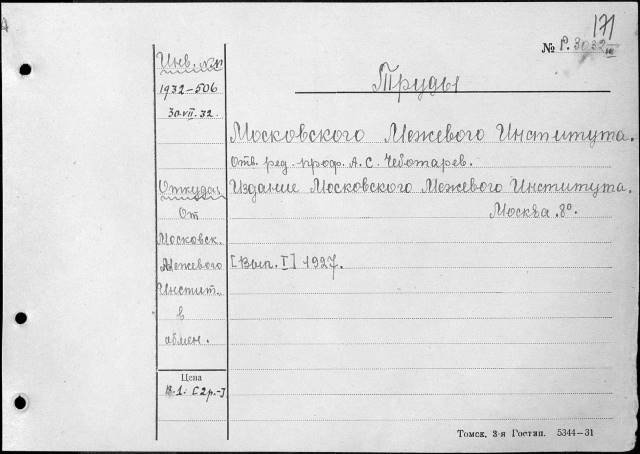 171
№ Р. 3032
Инв.
1932-506
30.VII.32.
Труды
Московского Межевого Института.
Отв. ред. проф. А. С. Чеботарев.
Откуда: Издание Московского Межевого Института.
От
Москва. 8°.
Московск.
Межевого
[Вып. I] 1927.
Инстит.
в
обмен.
Цена
В.1: [2р.-]
Томск, 3-я Гостип. 5344—31